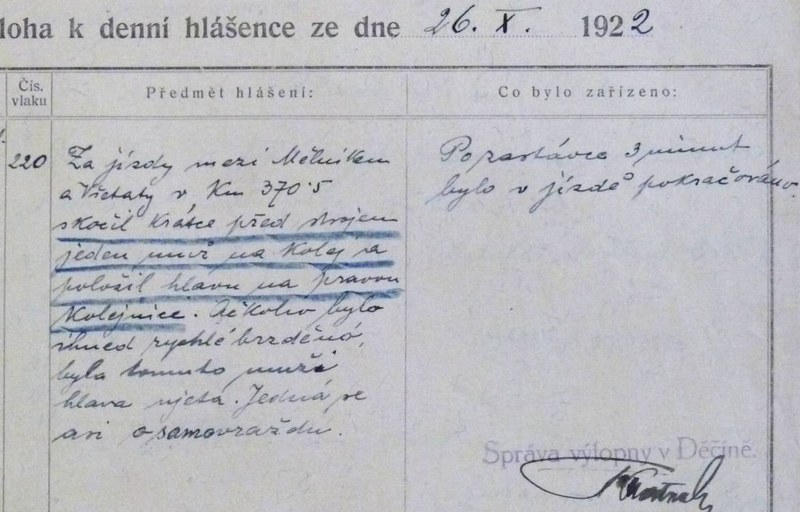 loha k denní hlášence ze dne 26. X. 1922
Čís. vlaku
Předmět hlášení:
Co bylo zařízeno:
220
Za jízdy mezi Mělníkem
a Všetaty v Km 370·5
skočil krátce před strojem
jeden muž na kolej a
položil hlavu na pravou
kolejnici. Ačkoliv bylo
ihned rychlé brzděno,
byla tomuto muži
hlava ujeta. Jedná se
asi o samovraždu.
Po zastávce 3 minut
bylo v jízdě pokračováno.
Správa výtopny v Děčíně.